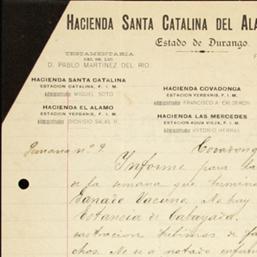 HACIENDA SANTA CATALINA DEL ALA
Estado de Durango.
TESTAMENTARIA
DEL SR. LIC.
D. PABLO MARTINEZ DEL RIO.
HACIENDA SANTA CATALINA
ESTACION CATALINA, F. I. M.
MIGUEL SOTO
HACIENDA COVADONGA
ESTACION YERBANIS, F. I. M.
FRANCISCO A. CALDERON
HACIENDA EL ALAMO
ESTACION YERBANIS, F. I. M.
DIONISIO SALAS
HACIENDA LAS MERCEDES
ESTACION AGUA VIEJA, F. I. M.
ANTONIO HERRAN
Semana nº 9
Covadong
Informe para la
de la semana que termina
Ganado Vacuno. No hay
Estancia de